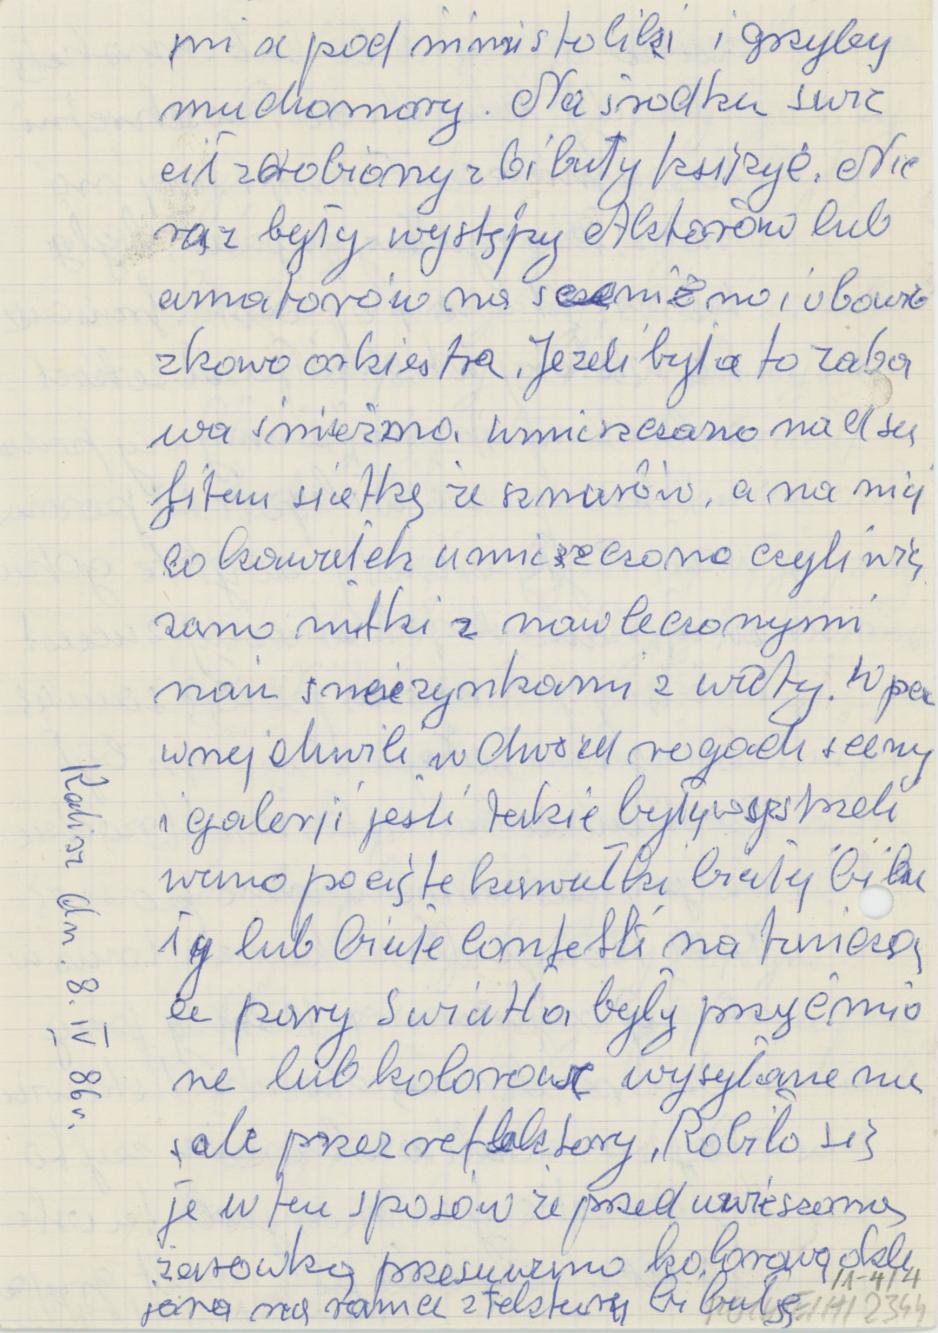 mi a pod nimi stoliki i grzyby
muchomory. Na środku świe
cił zrobiony z bibuły księżyc. Nie
raz były występy Aktorów lub
amatorów na scenie no i obowią
zkowo orkiestra. Jeżeli była to zaba
wa śnieżna umieszczano nad su
fitem siatkę ze sznurów, a na niej
co kawałek umieszczono czyli wią
zano nitki z nawleczonymi
nań śnieżynkami z waty. W pe
wnej chwili w dwóch rogach sceny
i galerji jeśli takie były wystrzeli
wano pocięte kawałki białej bibu
ły lub białe confetti na tańczą
ce pary Światła były przyćmio
ne lub kolorowe wysyłane na
sale przez reflektory, Robiło się
je w ten sposów że przed uwieszoną
żarówką przesuwano kolorową okle
janą na ramce z tektury bibułę
Kalisz dn. 8. IV 86r.
/1-4/4
2344